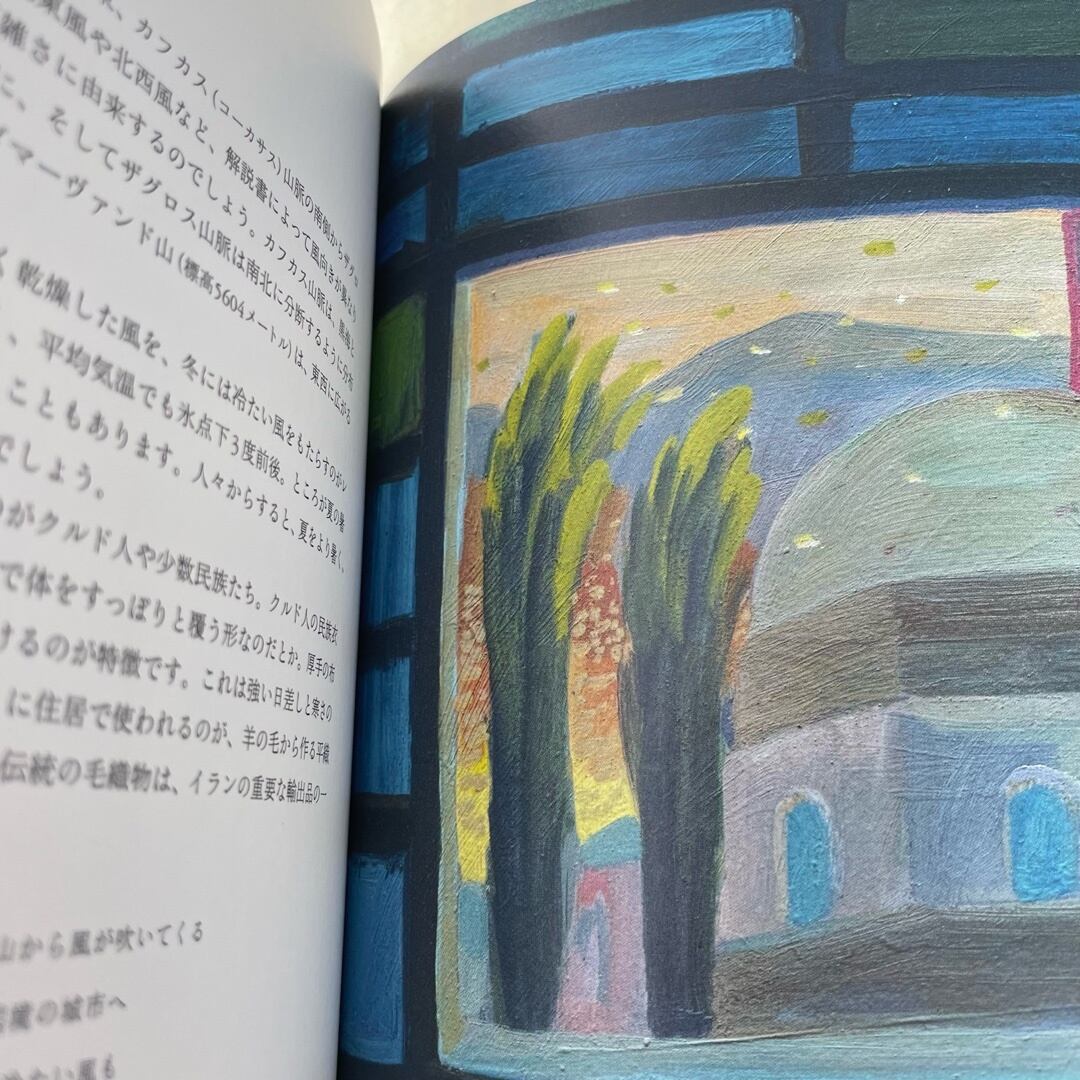 、カフカス(コーカサス)山脈の南側からザグロ
東風や北西風など、解説書によって風向きが異なり
雑さに由来するのでしょう。カフカス山脈は、黒海と
に、そしてザグロス山脈は南北に分断するように分布
マーヴァンド山(標高5604メートル)は、東西に広がる
く乾燥した風を、冬には冷たい風をもたらすのがレ
、平均気温でも氷点下3度前後。ところが夏の暑
こともあります。人々からすると、夏をより暑く、
でしょう。
のがクルド人や少数民族たち。クルド人の民族衣
で体をすっぽりと覆う形なのだとか。厚手の布
けるのが特徴です。これは強い日差しと寒さの
に住居で使われるのが、羊の毛から作る平織
伝統の毛織物は、イランの重要な輸出品の一
山から風が吹いてくる
の城市へ
冷たい風も